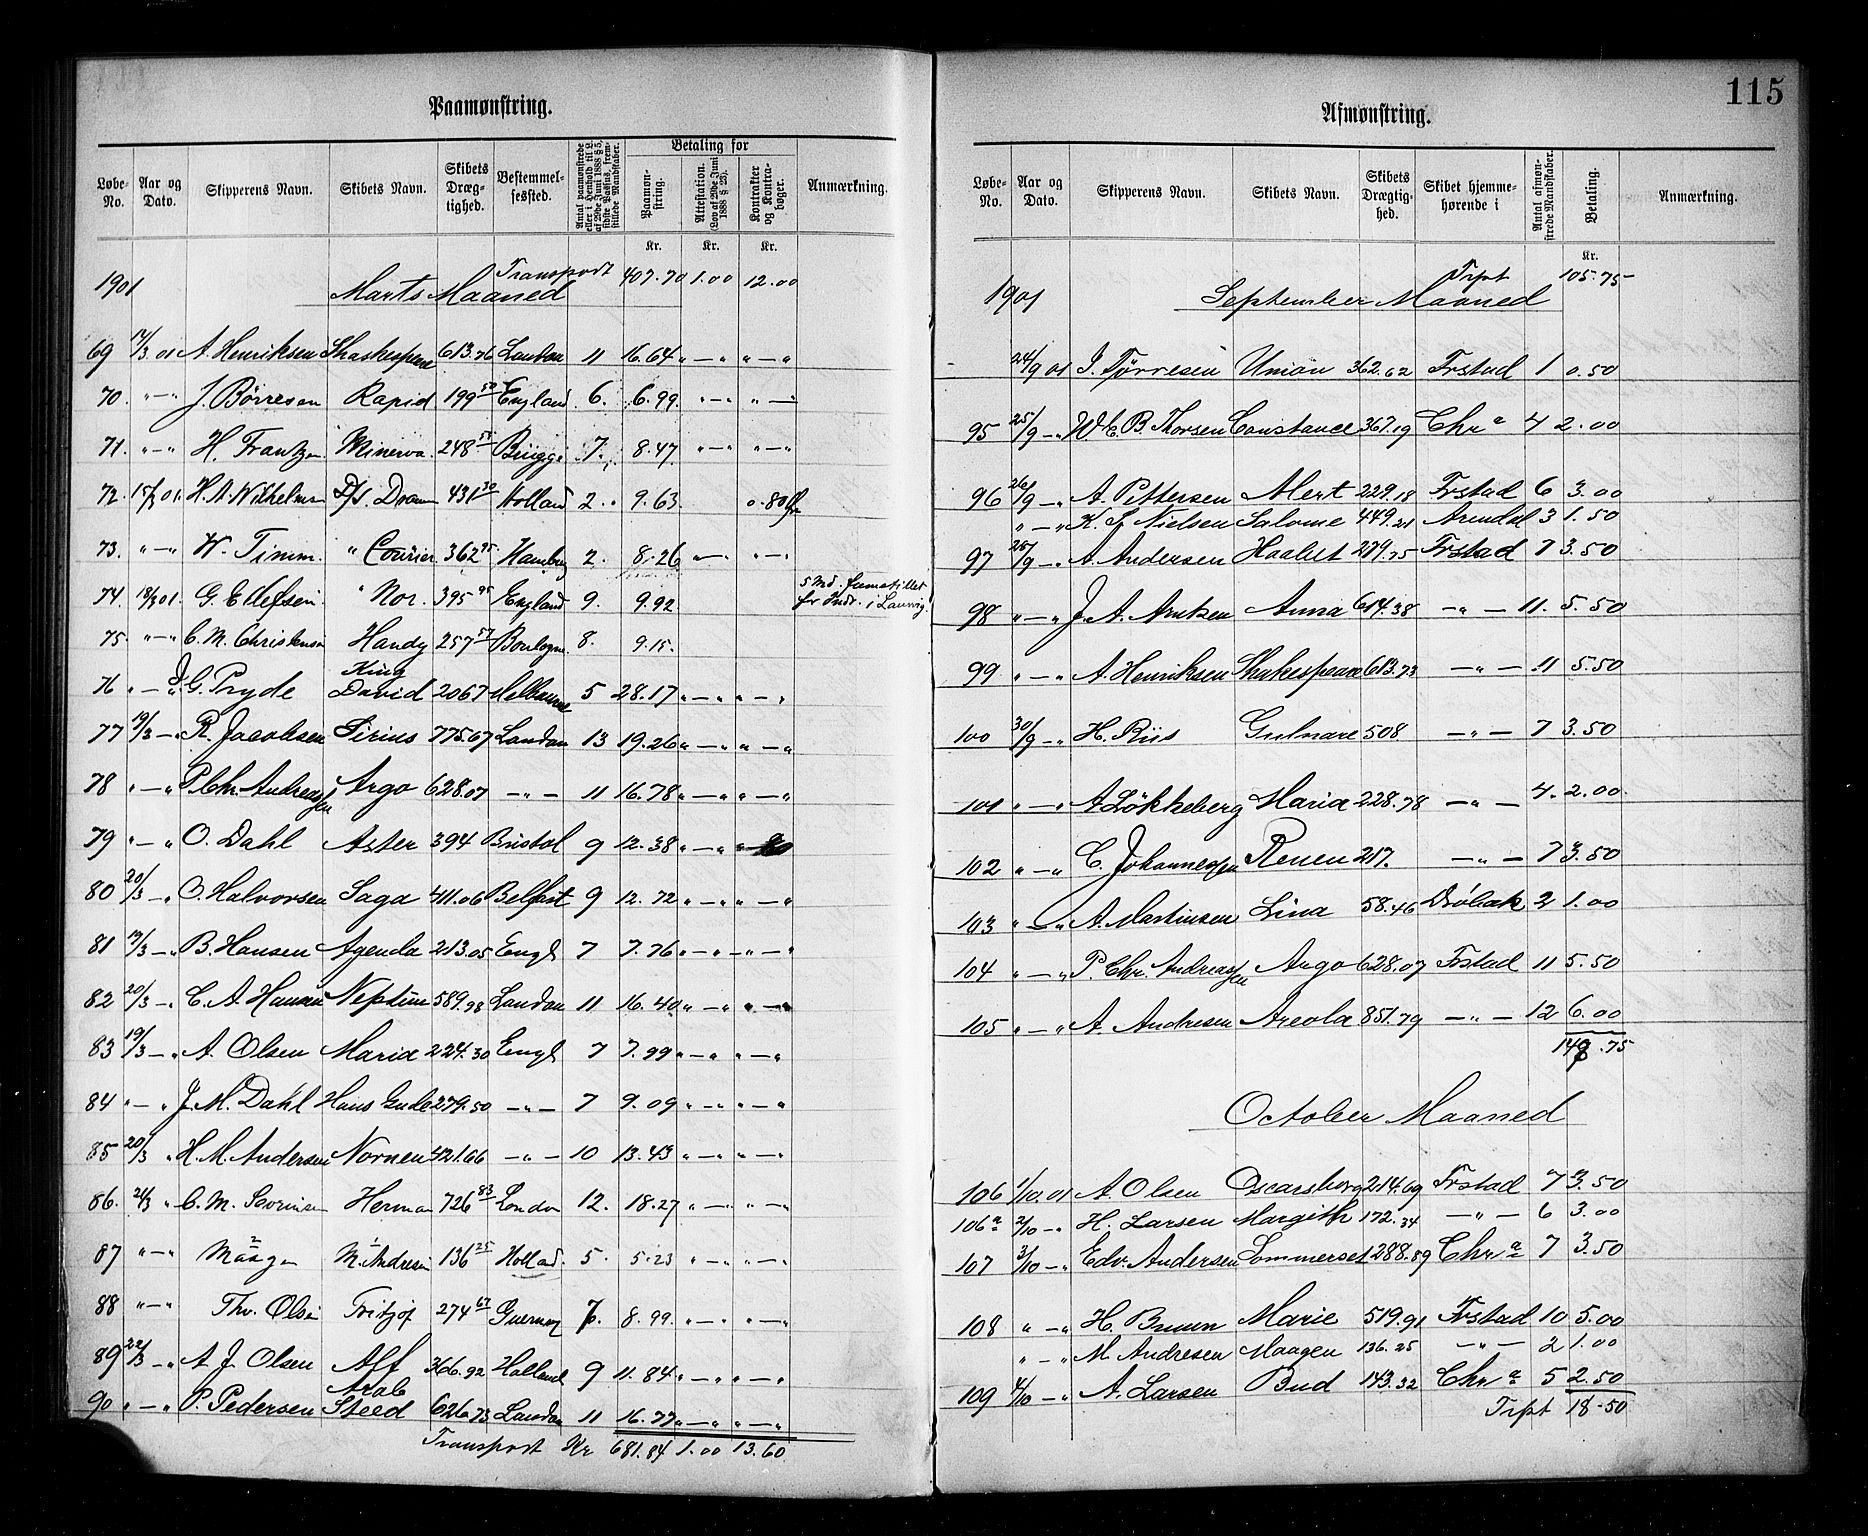 115
Paamønstring.
Løbe-No. Aar og Dato. Skipperens Navn. Skibets Navn. Skibets Dræg-tighed. Bestemmel-sessted. Betaling for Paamøn-string. Attestation. (Lov af 29de Juni 1888 § 23). Kontrakter og Kontra-bøger. Anmærkning.
Kr. Kr. Kr.
1901 Marts Maaned Transport 407.70 1.00 12.00
69 17/3 01 A. Henriksen Shaskespeare 613.76 London 11 16.64 „ — „ „ — „
70. „ — „ J. Börresen Rapid 199 50 England 6. 6.99. „ — „ „ — „
71. „ — „ H. Frantzen Minerva 248 58 Brügge 7. 8.47. „ — „ „ — „
72. 01. H. A. Wilhelmsen D/S. Dram 431 30 Holland 2. 9.63 0.80
73. „ — „ W. Timm. „ Courier 362 95 Hamburg 2. 8.26 „ — „ „ — „
74. 18/3 01. G. Ellefsen „ Nor. 395 95 England 9. 9.92 5 Md. fremstillet for Indr. i Laurvig.
75. „ — „ C. M. Christensen Handy 257 57 Boulogne 8. 9.15.
76 „ — „ J. G. Pryde King David 2067 Melbourne 5 28.17 „ — „ „ — „
77 19/3 — „ R. Jacobsen Sirius 775.67 London 13 19.26 „ — „ „ — „
78 „ — „ P. Chr. Andreassen Argo 628.07 — „ — 11 16.78 „ — „ „ — „
79 „ — „ O. Dahl Aster 394 Bristol 9 12.38 „ — „
80 20/3 — „ O. Halvorsen Saga 411.06 Belfast 9 12.72 „ — „ „ — „
81 19/3 — „ B. Hansen Agenda 213.05 Engl 7 7.76 „ — „ — „ — „
82 20/3 — „ C. A. Hansen Neptun 589.98 London 11 16.40 „ — „ „ — „
83 19/3 — „ A. Olsen Maria 224.30 Engl 7 7.99 „ — „ „ — „
84 „ — „ J. M. Dahl Hans Gude 279.50 — „ — 7 9.09 „ — „ „ — „
85 20/3 „ H. M. Andersen Nornen 421.06 — „ — 10 13.43 „ — „ „ — „
86. 21/3 — „ C. M. Severinsen Herman 726 83 London 12. 18.27 „ — „ „ — „
87 „ — „ Maagen M. Andresen 136 25 Holland. 5. 5.23 „ — „ „ — „
88 „ — „ Thv. Olsen Fritjof 274 67 Guernsey 7. 8.99. „ — „ „ — „
89 22/3 — „ A. J. Olsen Alf 366.92 Holland 9 11.84 „ — „ „ — „
90 „ — „ P. Pedersen Arab Steed 626.73 London 11 16.77 „ — „ „ — „
Transport Kr 681.84 1.00 13.60
Afmønstring.
Løbe-No. Aar og Dato. Skipperens Navn. Skibets Navn. Skibets Drægtig-hed. Skibet hjemme-hørende i Antal afmøn-strede Mandskaber. Betaling. Anmærkning.
Kr.
1901 September Maaned Trpt 105.75
24/9 01 J. Tørresen Union 362.62 Frstad 1 0.50
95 25/9 — „ W. C. B. Thorsen Constance 367.19 Chr a 4 2.00
96 26/9 — „ A. Pettersen Alert 229.18 Frstad 6 3.00
„ — „ K. S. Nielsen Salome 449.21 Arendal 3 1.50
97 28/9 — „ A. Andersen Haabet 274.75 Frstad 7 3.50
98 „ — „ J. A. Arntsen Anna 614.38 — „ — 11. 5.50
99 „ — „ A. Henriksen Shakespeare 613.73 — „ — 11 5.50
100 30/9 — „ H. Riis Gulnare 508. — „ — 7 3.50
101 „ — „ A Lökkeberg Maria 228.78 — „ — 4. 2.00.
102 „ — „ C. Johannessen Renen 217. — „ — 7 3.50
103 „ — „ A. Martinsen Lina 58.46 Dröbak 2 1.00
104 „ — „ P. Chr. Andreassen Argo 628.07 Frstad 11 5.50
105 „ — „ A. Andresen Areola 851.79 — „ — 12 6.00
149.75
October Maaned
106 1/10 01 A Olsen Oscarsborg 214.69 Frstad 7 3.50
106 a 2/10 — „ H. Larsen Margith 172.34 — „ — 6 3.00
107 3/10 — „ Edv. Andersen Sommerset 288.89 Chr a 7 3.50
108 „ — „ H. Bruun Marie 519.91 Frstad 10 5.00
„ — „ M Andresen Maagen 136.25 — „ — 2 1.00
109 4/10 — „ A. Larsen Bud 143.32 Chr a 5 2.50
Trpt 18.50